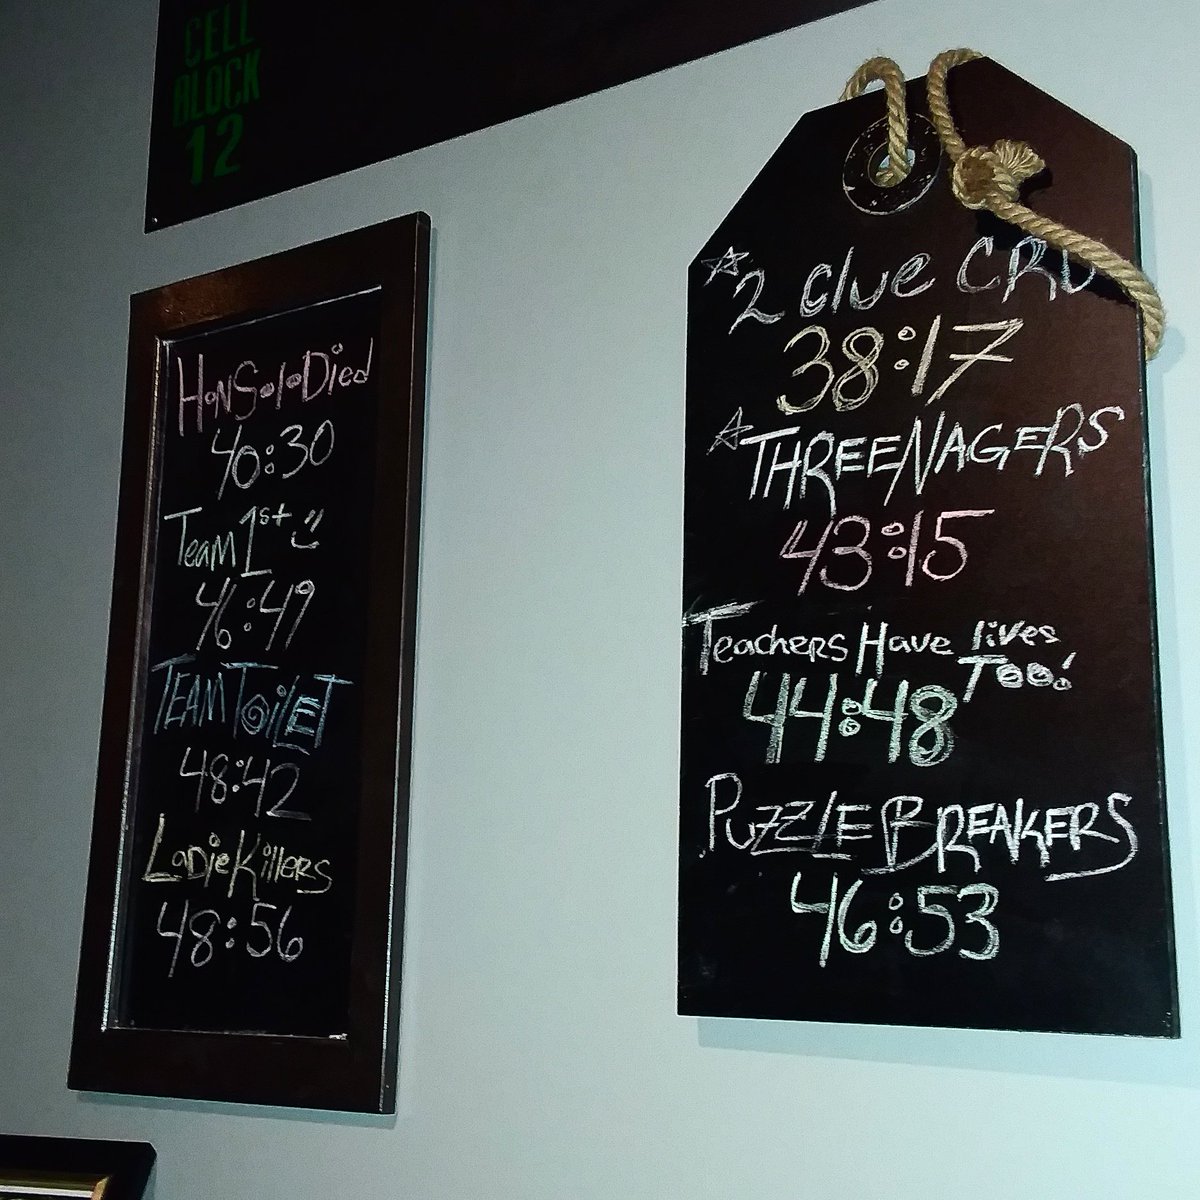 CELL
BLOCK
12
HanSoloDied
40:30
Team 1st
46:49
TEAM TOILET
48:42
LadieKillers
48:56
2 Clue CRU
38:17
THREENAGERS
43:15
Teachers Have lives
Too!
44:48
PUZZLE BREAKERS
46:53